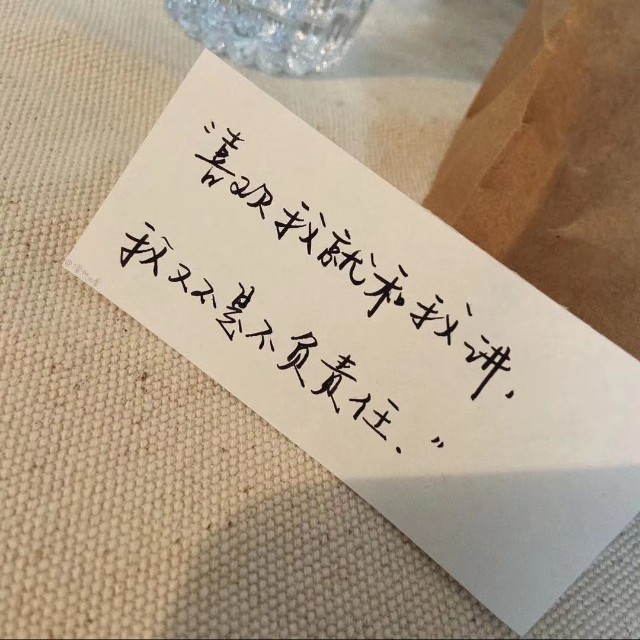 “喜欢我就和我讲，
我又不是不负责任.”